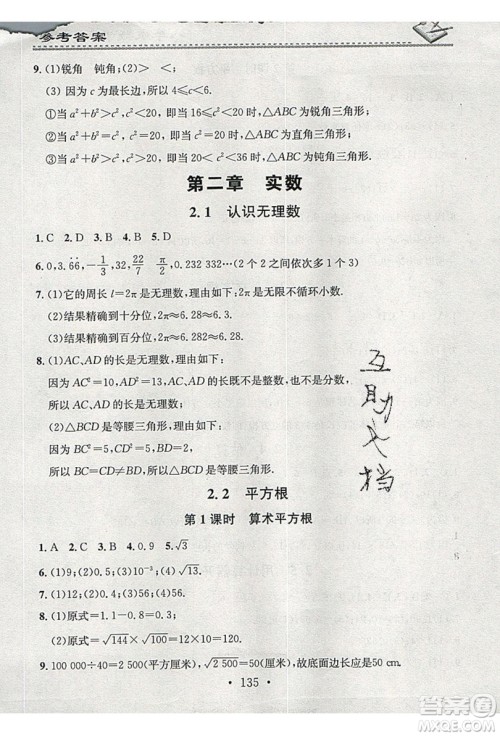 参考答案
9. (1)锐角　钝角;(2)>　<;
(3)因为 c 为最长边,所以 4≤c<6.
①当 a²+b²>c²,c²<20 时,△ABC 为锐角三角形;
②当 a²+b²=c²,c²=20 时,△ABC 为直角三角形;
③当 a²+b²<c²,20<c²<36 时,△ABC 为钝角三角形.
第二章　实数
2.1　认识无理数
1. C　2. D　3. B　4. B　5. D
6. 0, 3.6̇6̇, -1/3, 32, 22/7　π/2, 0.232 333…(2个2之间依次多1个3)
7. (1)它的周长 l=2π 是无理数,理由如下:2π 是无限不循环小数.
(2)结果精确到十分位,2π≈6.28≈6.3.
(3)结果精确到百分位,2π≈6.282≈6.28.
8. (1)AC、AD 的长是无理数,理由如下:
因为 AC²=10,AD²=20,AC、AD 的长既不是整数,也不是分数,
所以 AC、AD 的长是无理数.
(2)△BCD 是等腰三角形,理由如下:
因为 BC²=5,CD²=5,BD=2,
所以 BC=CD≠BD,所以△BCD 是等腰三角形.
2.2　平方根
第1课时　算术平方根
1. A　2. C　3. B　4. 0.9　5. √3
6. (1)10;(2)9/10;(3)10⁻³;(4)√13.
7. (1)12;(2)0.1;(3)56;(4)56.
8. (1)原式=1.1-0.8=0.3.
9. 100 000÷40=2 500(平方厘米),√2 500=50(厘米),故底面边长应是50 cm.
·135·
互
助
文
档